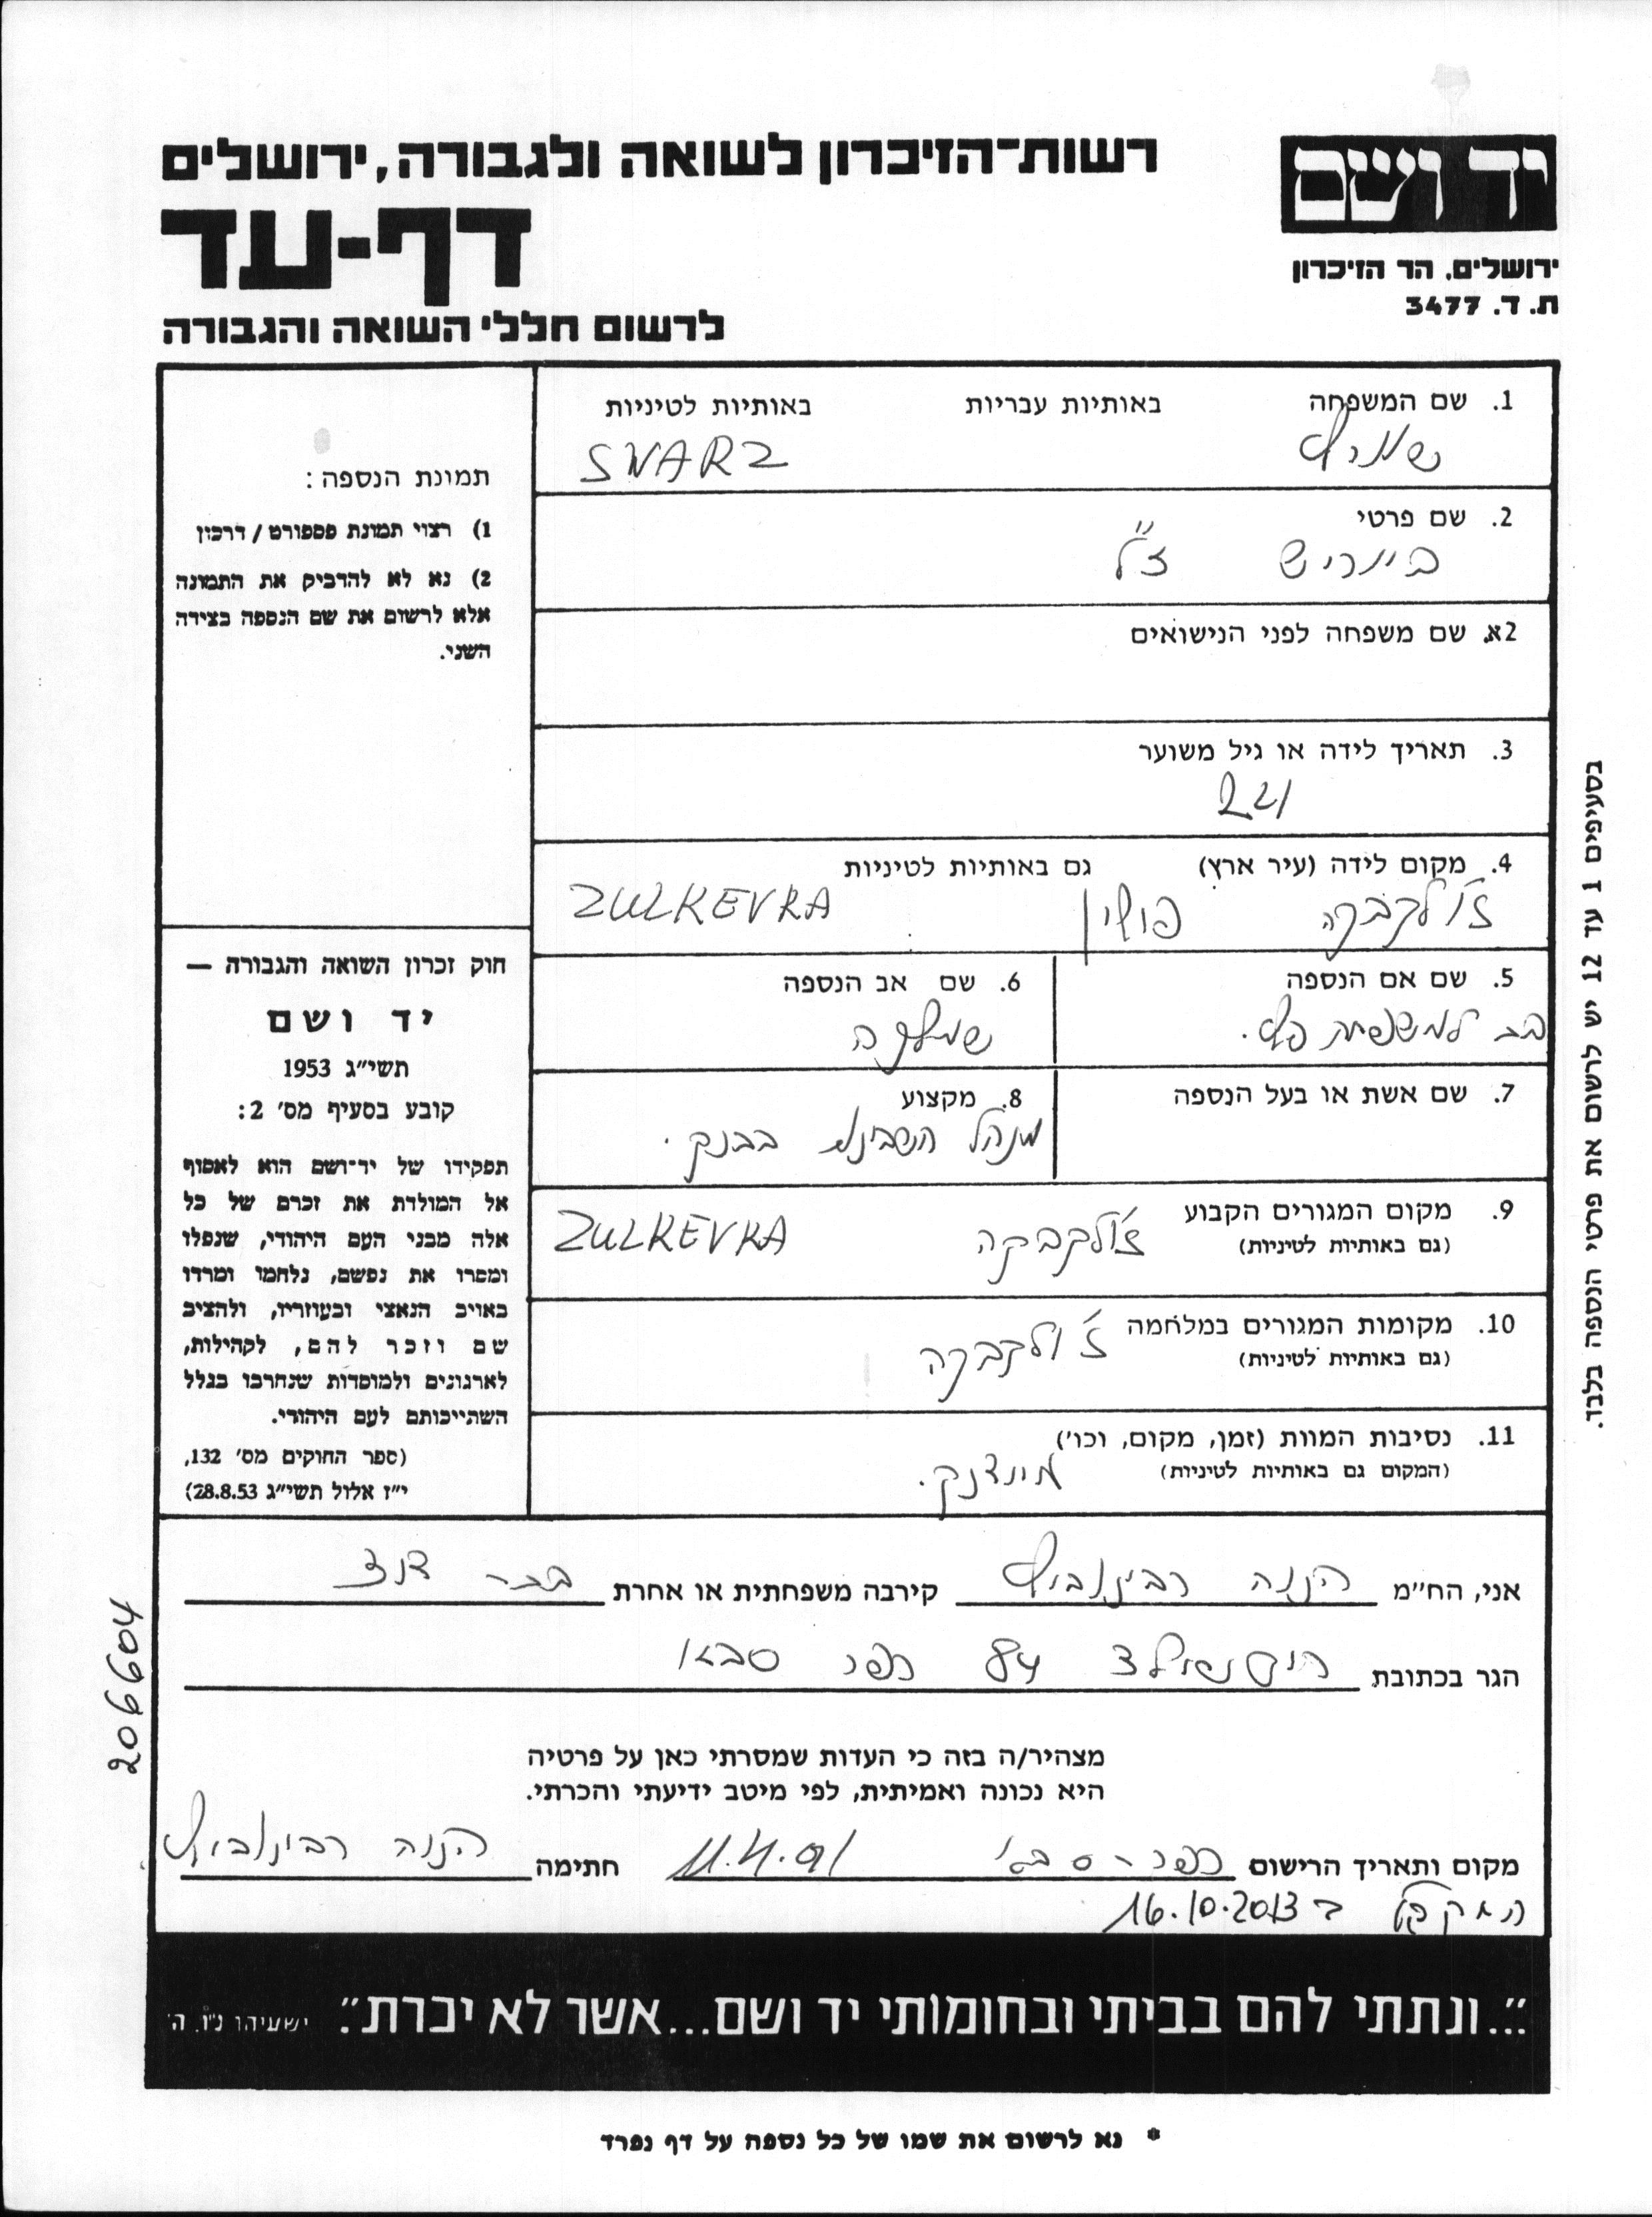 יד ושם
רשות־הזיכרון לשואה ולגבורה, ירושלים
דף-עד
ירושלים, הר הזיכרון
ת. ד. 3477
לרשום חללי השואה והגבורה
1. שם המשפחה באותיות עבריות באותיות לטיניות
שוורץ SVARZ
2. שם פרטי
ביריש ז"ל
2א. שם משפחה לפני הנישואים
3. תאריך לידה או גיל משוער
4. מקום לידה (עיר ארץ) גם באותיות לטיניות
ז'ולקבקה פולין ZULKEVKA
5. שם אם הנספה
בת למשפחת
6. שם אב הנספה
שמלקה
7. שם אשת או בעל הנספה
8. מקצוע
מנהל חשבונות בבנק.
9. מקום המגורים הקבוע
(גם באותיות לטיניות)
ז'ולקבקה ZULKEVKA
10. מקומות המגורים במלחמה
(גם באותיות לטיניות)
ז'ולקבקה
11. נסיבות המוות (זמן, מקום, וכו')
(המקום גם באותיות לטיניות)
מיידנק.
תמונת הנספה:
1) רצוי תמונת פספורט/דרכון
2) נא לא להדביק את התמונה
אלא לרשום את שם הנספה בצידה
השני.
חוק זכרון השואה והגבורה —
יד ושם
תשי"ג 1953
קובע בסעיף מס' 2:
תפקידו של יד־ושם הוא לאסוף
אל המולדת את זכרם של כל
אלה מבני העם היהודי, שנפלו
ומסרו את נפשם, נלחמו ומרדו
באויב הנאצי ובעוזריו, ולהציב
שם וזכר להם, לקהילות,
לארגונים ולמוסדות שנחרבו בגלל
השתייכותם לעם היהודי.
(ספר החוקים מס' 132,
י"ז אלול תשי"ג 28.8.53)
בסעיפים 1 עד 12 יש לרשום את פרטי הנספה בלבד.
אני, הח"מ חנה רבינוביץ קירבה משפחתית או אחרת
הגר בכתובת רוטשילד 84 כפר סבא
206604
מצהיר/ה בזה כי העדות שמסרתי כאן על פרטיה
היא נכונה ואמיתית, לפי מיטב ידיעתי והכרתי.
מקום ותאריך הרישום כפר-סבא 11.4.91 חתימה חנה רבינוביץ
התקבל ב 16.10.2013
"...ונתתי להם בביתי ובחומותי יד ושם...אשר לא יכרת". ישעיהו נ"ו, ה'
* נא לרשום את שמו של כל נספה על דף נפרד